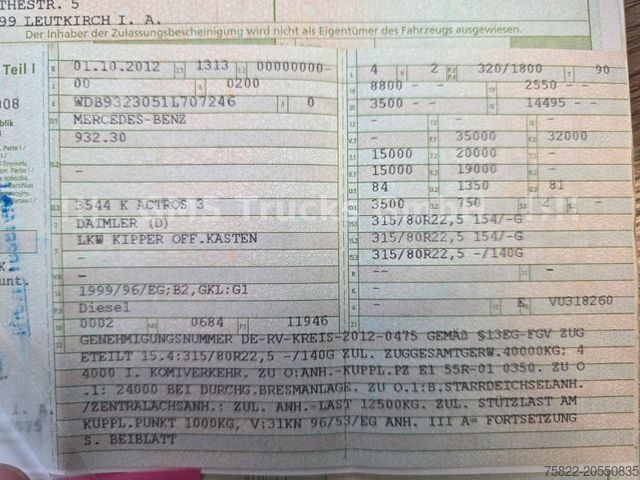 THESTR. 5
99 LEUTKIRCH I. A.
Der Inhaber der Zulassungsbescheinigung wird nicht als Eigentümer des Fahrzeugs ausgewiesen.
Teil I
01.10.2012 1313 00000000-
00 0200
WDB9323051L707246 0
MERCEDES-BENZ
932.30
-
3544 K ACTROS 3
DAIMLER (D)
LKW KIPPER OFF.KASTEN
-
-
1999/96/EG;B2,GKL:G1
Diesel
0002 0684 11946
4 2 320/1800 90
8800 -- 2550 --
3500 - 14495 --
- - -
- 35000 32000
15000 20000 -
15000 19000 -
84 1350 81
3500 750 4 -
315/80R22,5 154/-G
315/80R22,5 154/-G
315/80R22,5 -/140G
-- -
-
- E VU318260
GENEHMIGUNGSNUMMER DE-RV-KREIS-2012-0475 GEMÄß §13EG-FGV ZUG
ETEILT 15.4:315/80R22,5 -/140G ZUL. ZUGGESAMTGERW.40000KG; 4
4000 I. KOMIVERKEHR. ZU O:ANH.-KUPPL.PZ E1 55R-01 0350. ZU O
.1: 24000 BEI DURCHG.BRESMANLAGE. ZU O.1:B.STARRDEICHSELANH.
/ZENTRALACHSANH.: ZUL. ANH.-LAST 12500KG. ZUL. STÜTZLAST AM
KUPPL.PUNKT 1000KG, V:31KN 96/53/EG ANH. III A= FORTSETZUNG
S. BEIBLATT
75822-20550835